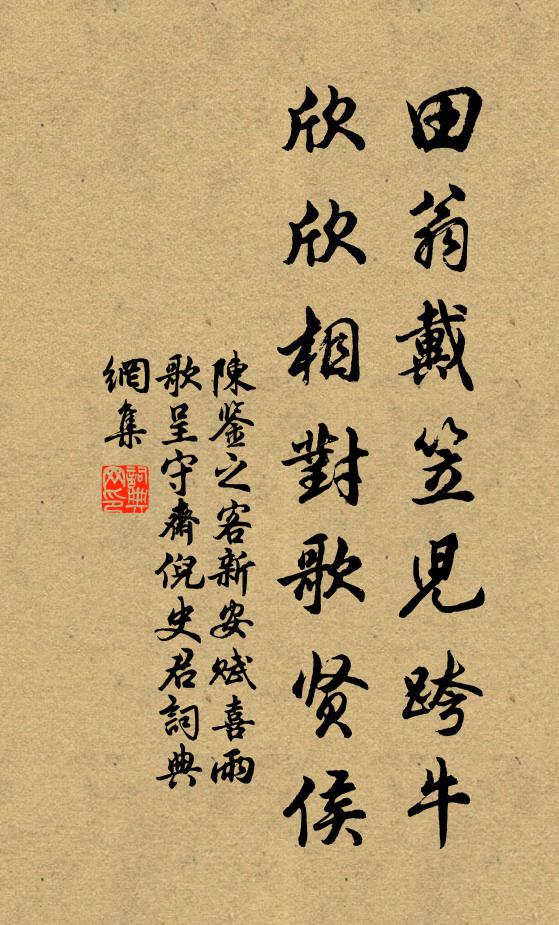 田翁戴笠児跨牛
欣欣相對歌贤侯
陳鉴之客新安赋喜雨
歌呈守齋倪史君詞典
網集
詞典网印